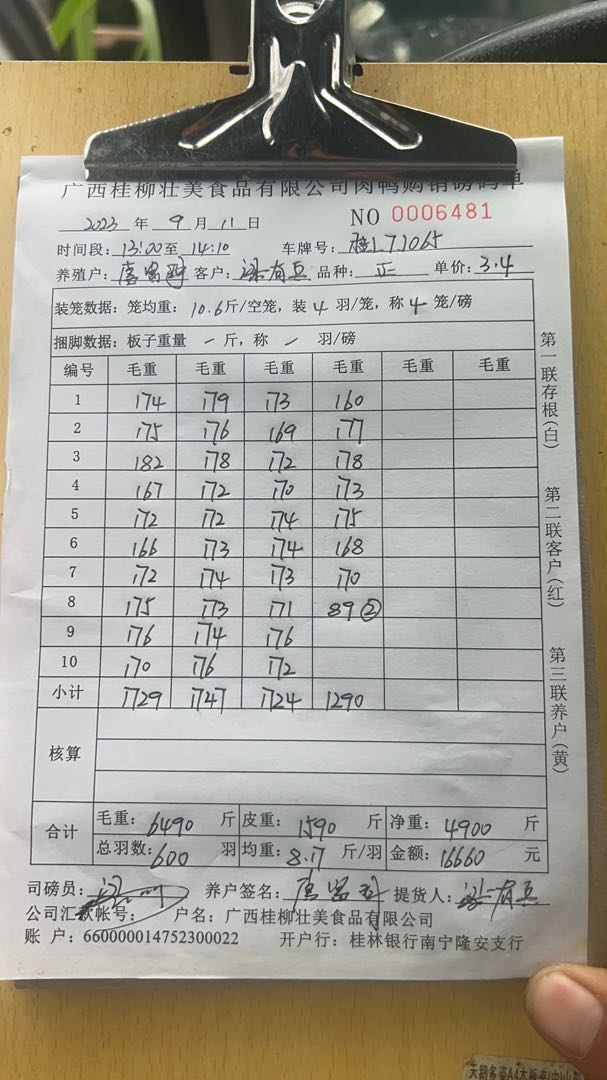 广西桂柳壮美食品有限公司肉鸭购销磅码单
2023 年 9 月 11 日 NO 0006481
时间段：13:00至 14:10 车牌号：桂L71065
养殖户： 客户：梁有兵 品种：正 单价：3.4
装笼数据：笼均重：10.6斤/空笼，装 4 羽/笼，称 4 笼/磅
捆脚数据：板子重量 一 斤，称 一 羽/磅
编号 毛重 毛重 毛重 毛重 毛重 毛重
1 174 179 173 160
2 175 176 169 177
3 182 178 172 178
4 167 172 170 173
5 172 172 174 175
6 166 173 174 168
7 172 174 173 170
8 175 173 171 89②
9 176 174 176
10 170 176 172
小计 1729 1747 1724 1290
核算
合计 毛重：6490 斤 皮重：1590 斤 净重：4900 斤
总羽数：600 羽 均重：8.17 斤/羽 金额：16660 元
司磅员： 养户签名： 提货人：梁有兵
公司汇款帐号： 户名：广西桂柳壮美食品有限公司
账 户：660000014752300022 开户行：桂林银行南宁隆安支行
第一联存根(白)
第二联客户(红)
第三联养户(黄)